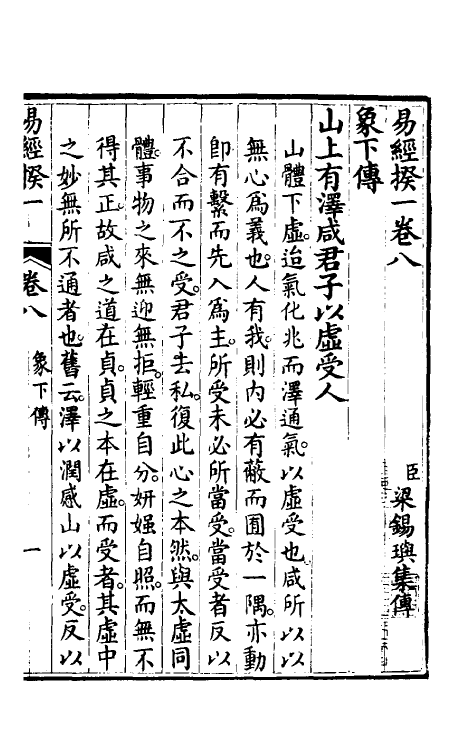 易經揆一卷八
臣梁錫璵集傳
象下傳
山上有澤咸君子以虛受人
山體下虛。迨氣化兆而澤通氣。以虛受也。咸所以以
無心爲義也。人有我。則内必有蔽而囿於一隅。亦動
卽有繫而先入爲主。所受未必所當受。當受者反以
不合而不之受。君子去私。復此心之本然。與太虛同
體。事物之來。無迎無拒。輕重自分。妍媸自照。而無不
得其正。故咸之道在貞。貞之本在虛。而受者。其虛中
之妙無所不通者也。舊云。澤以潤感山以虛受。反以
易經揆一 卷八 象下傳 一